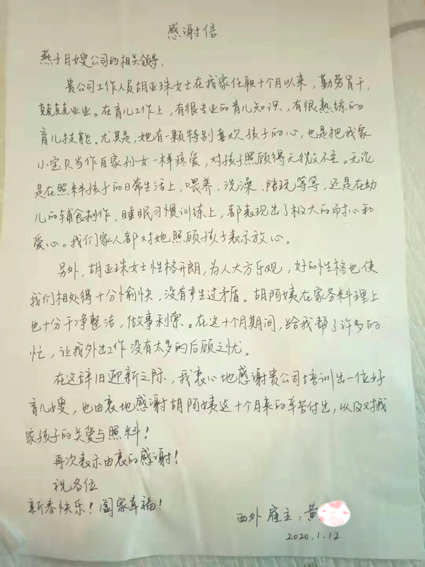 感谢信
燕子月嫂公司的相关领导，
贵公司工作人员胡亚珠女士在我家任职十个月以来，勤劳肯干，
兢兢业业。在育儿工作上，有很专业的育儿知识，有很熟练的
育儿技能。尤其是，她有一颗特别喜欢孩子的心，也是把我家
小宝贝当作自家孙女一样疼爱，对孩子照顾得无微不至。无论
是在照料孩子的日常生活上，喂养、洗澡、陪玩等等，还是在幼
儿的辅食制作、睡眠习惯训练上，都表现出了极大的耐心和
爱心。我们家人都对她照顾孩子表示放心。
另外，胡亚珠女士性格开朗，为人大方乐观，好的性格也使
我们相处得十分愉快，没有产生过矛盾。胡阿姨在家务料理上
也十分干净整洁，做事利索。在这十个月期间，给我帮了许多的
忙，让我外出工作没有太多的后顾之忧。
在这辞旧迎新之际，我衷心地感谢贵公司培训出一位好
育儿嫂，也由衷地感谢胡阿姨这十个月来的辛苦付出，以及对我
家孩子的关爱与照料！
再次表示由衷的感谢！
祝各位
新春快乐！阖家幸福！
西外 雇主：黄
2020.1.12